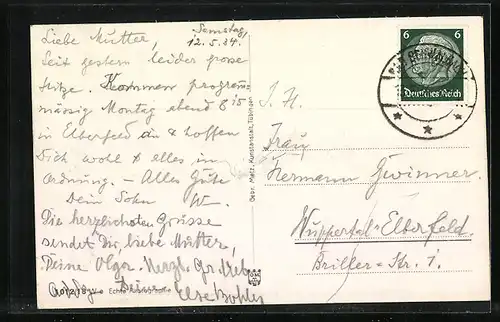 Samstag,
12.5.34.
Liebe Mutter,
Seit gestern leider grosse
Hitze. Kommen programm
mässig Montag abend 8 15
in Elberfeld an & hoffen
Dich wohl & alles in
Ordnung. – Alles Gute
Dein Sohn W.
Die herzlichsten Grüsse
sendet Dir, liebe Mutter,
Deine Olga. Herzl. Gr.
Else
Gebr. Metz, Kunstanstalt, Tübingen
6 6
Deutsches Reich
I. H.
Frau
Hermann Gwinner
Wuppertal-Elberfeld.
Briller-Str. 1.